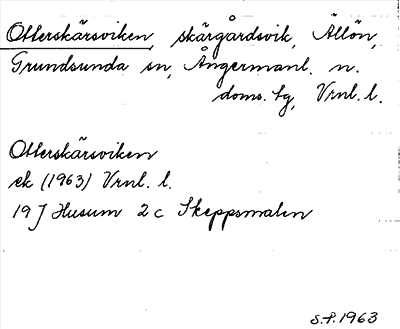 Otterskärsviken, skärgårdsvik, Ällön,
Grundsunda sn, Ångermanl. n.
doms. tg, Vrnl. l.
Otterskärsviken
ek (1963) Vrnl. l.
19 J Husum 2 c Skeppsmalen
S.P. 1963